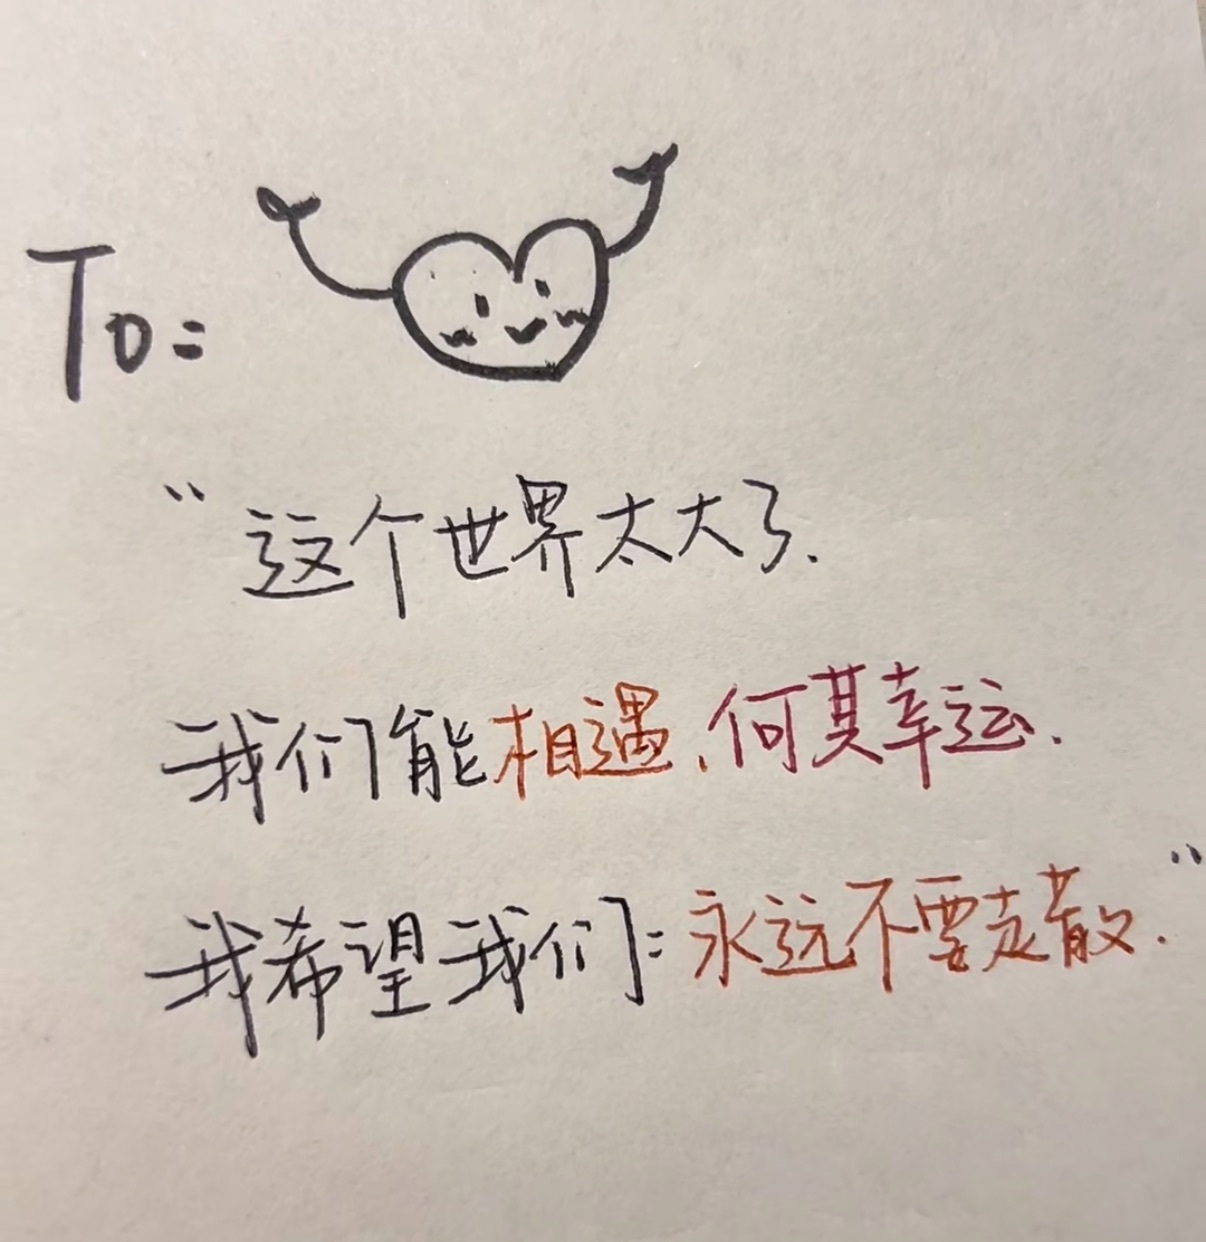 To:
“这个世界太大了.
我们能相遇.何其幸运.
我希望我们:永远不要走散.”